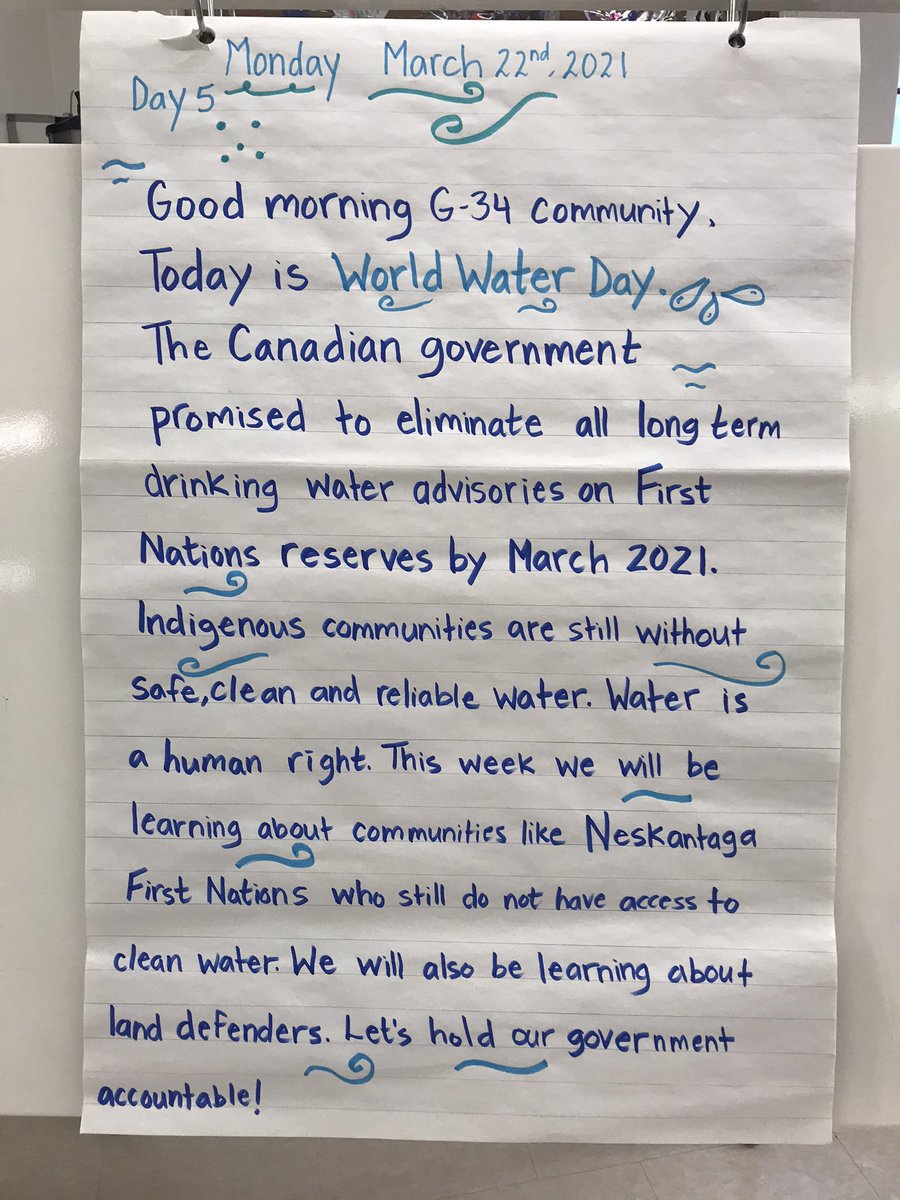 Monday March 22nd, 2021
Day 5
Good morning G-34 community.
Today is World Water Day.
The Canadian government
promised to eliminate all long term
drinking water advisories on First
Nations reserves by March 2021.
Indigenous communities are still without
safe, clean and reliable water. Water is
a human right. This week we will be
learning about communities like Neskantaga
First Nations who still do not have access to
clean water. We will also be learning about
land defenders. Let's hold our government
accountable!